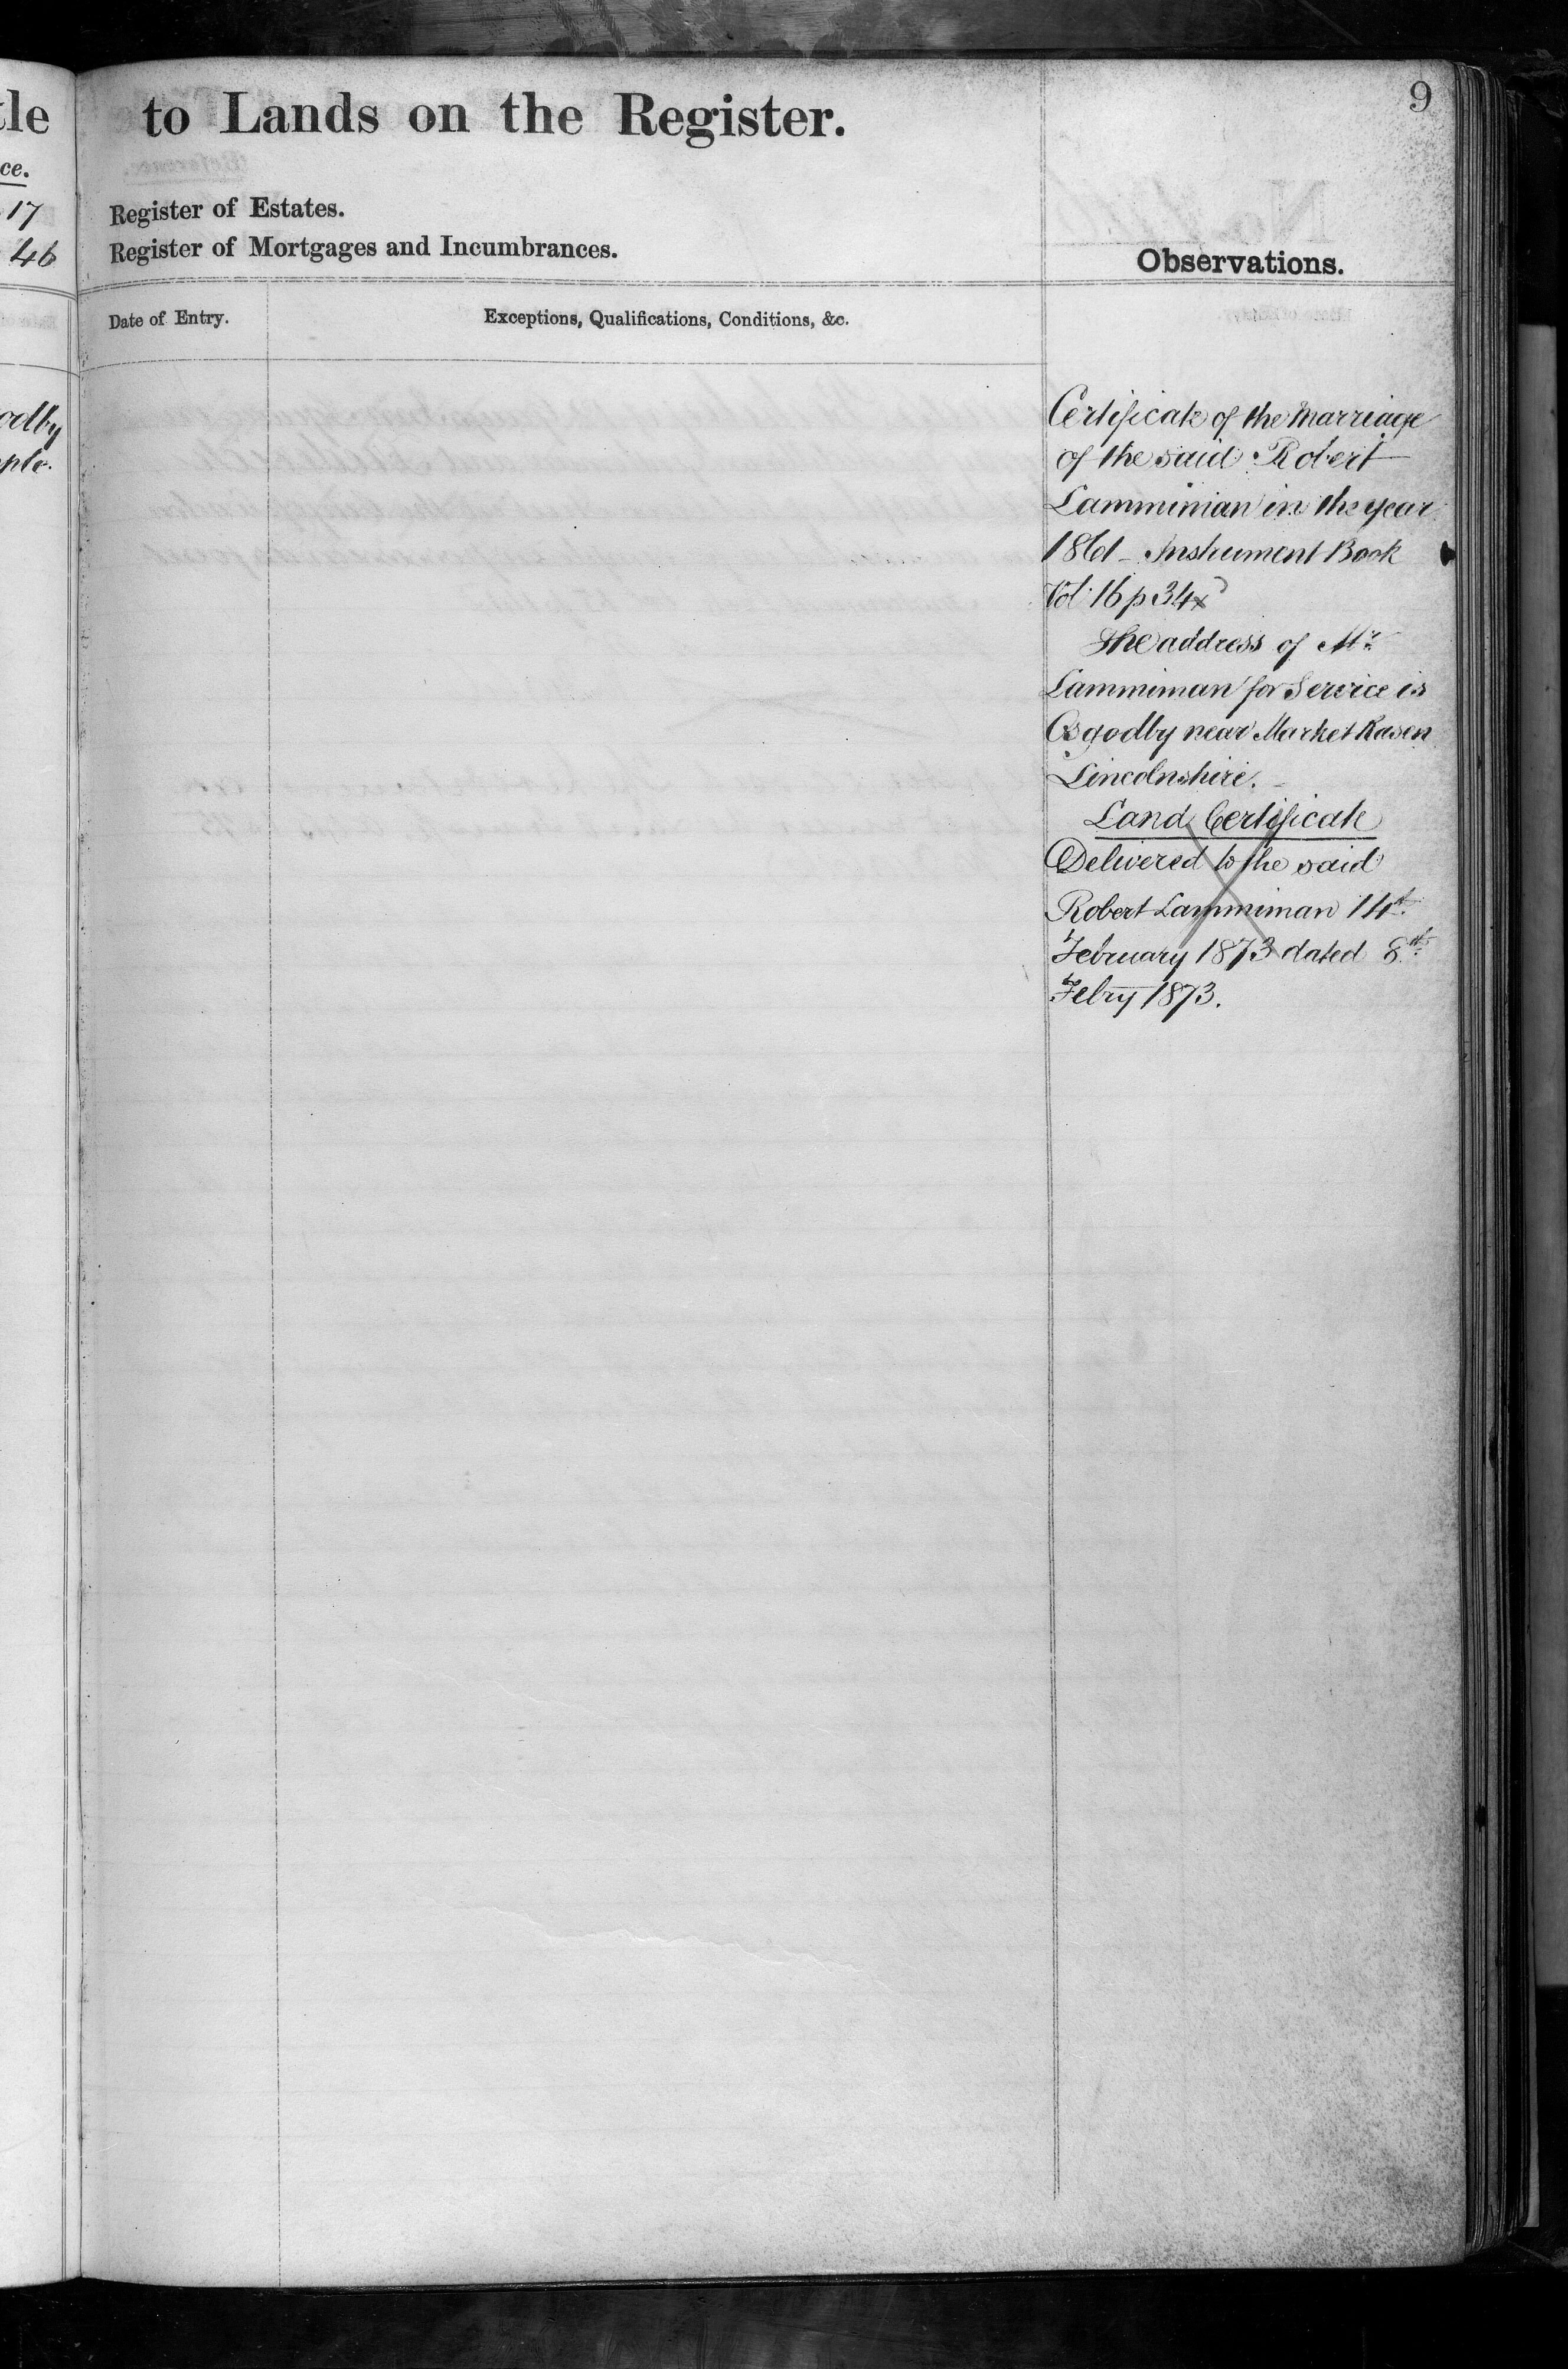 9
tle
to Lands on the Register.
ce.
17
46
Register of Estates.
Register of Mortgages and Incumbrances.
Observations.
Date of Entry.
Exceptions, Qualifications, Conditions, &c.
odby
ple.
Certificate of the Marriage
of the said Robert
Lammiman in the year
1861 - Instrument Book
Vol: 16 p 34
The address of Mr.
Lammiman for Service is
Osgodby near Market Rasen
Lincolnshire.
Land Certificate
Delivered to the said
Robert Lammiman 14th
February 1873 dated 8th
Febry 1873.